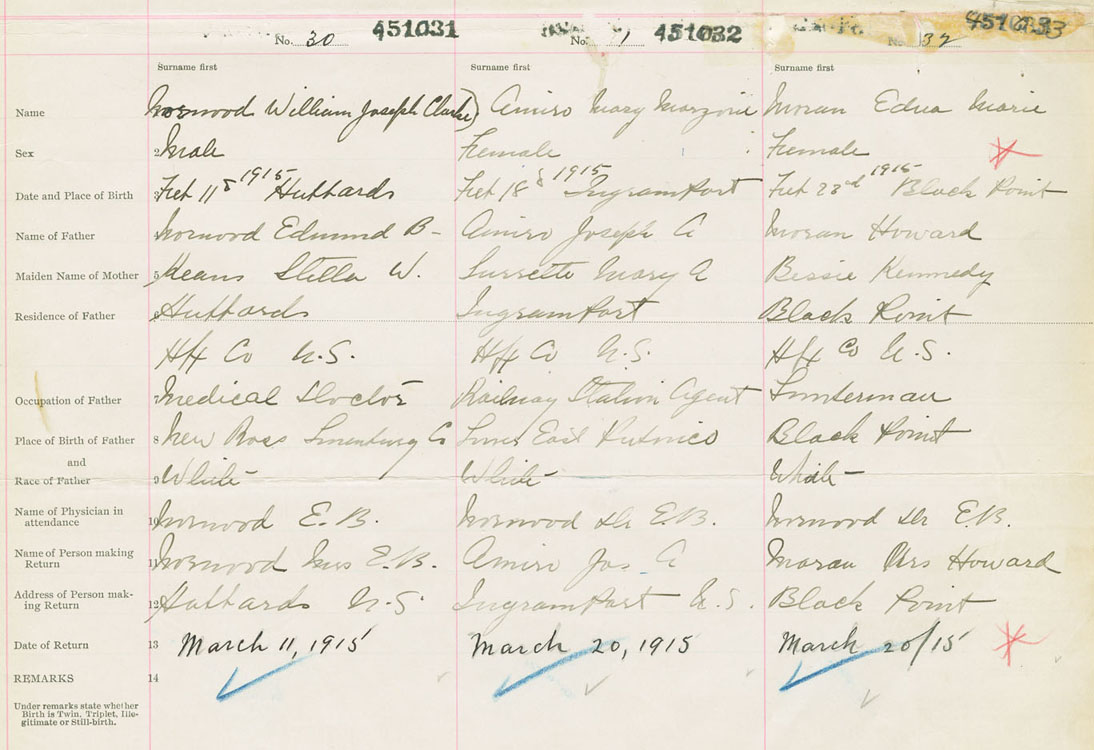 No. 30 451031 No. 451032 No. 32
Surname first Surname first Surname first
Name Norwood William Joseph Clarke) Amiro Mary Marjorie Moran Edna Marie
Sex 2 Male Female Female
Date and Place of Birth 3 Feb 11th 1915 Hubbards Feb 18th 1915 Ingramport Feb 23rd 1915 Black Point
Name of Father Norwood Edmund B- Amiro Joseph A Moran Howard
Maiden Name of Mother 5 Keans Stella W. Surrette Mary A Bessie Kennedy
Residence of Father 6 Hubbards Ingramport Black Point
Hfx Co N.S. Hfx Co N.S. Hfx Co N.S.
Occupation of Father 7 Medical Doctor Railway Station Agent Lumberman
Place of Birth of Father 8 New Ross Lunenburg Co East Pubnico Black Point
and
Race of Father 9 White White White
Name of Physician in
attendance 10 Norwood E. B. Norwood Dr E.B. Norwood Dr E.B.
Name of Person making
Return 11 Norwood Mrs E.B. Amiro Jos A Moran Mrs Howard
Address of Person mak-
ing Return 12 Hubbards N.S. Ingramport N.S. Black Point
Date of Return 13 March 11, 1915 March 20, 1915 March 20/15
REMARKS 14
Under remarks state whether
Birth is Twin, Triplet, Ille-
gitimate or Still-birth.